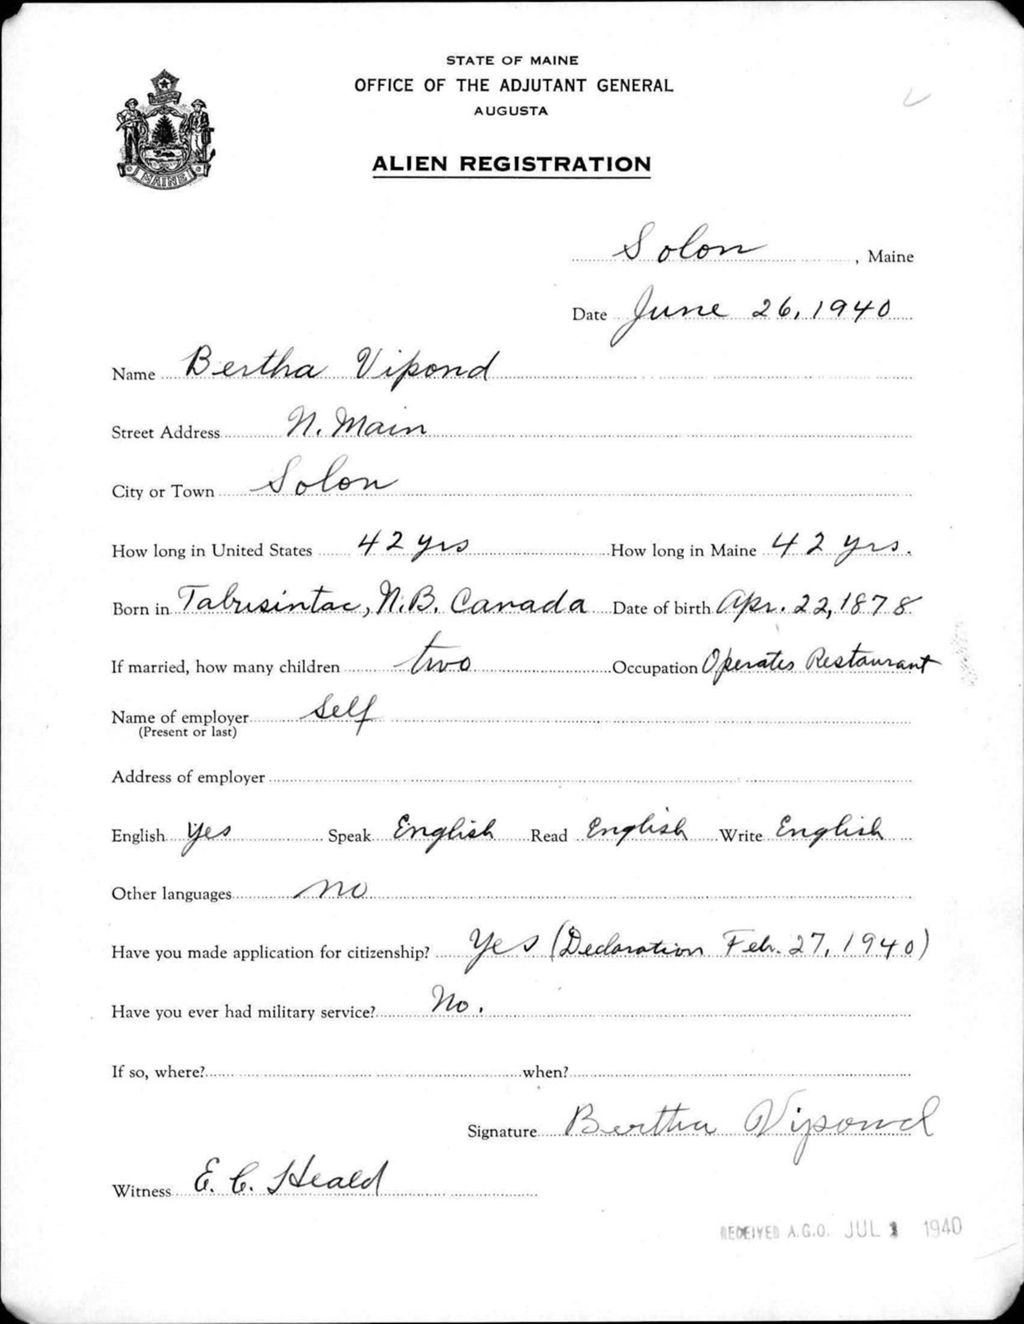 STATE OF MAINE
OFFICE OF THE ADJUTANT GENERAL
AUGUSTA
MAINE
ALIEN REGISTRATION
Solon, Maine
Date June 26, 1940
Name Bertha Vipond
Street Address N. Main
City or Town Solon
How long in United States 42 yrs How long in Maine 42 yrs.
Born in Tabusintac, N.B. Canada Date of birth Apr. 22, 1878
If married, how many children two Occupation Operates Restaurant
Name of employer Self
(Present or last)
Address of employer
English Yes Speak English Read English Write English
Other languages no
Have you made application for citizenship? Yes (Declaration Feb. 27, 1940)
Have you ever had military service? No.
If so, where? when?
Signature Bertha Vipond
Witness E. C. Heald
RECEIVED A.G.O. JUL 1 1940